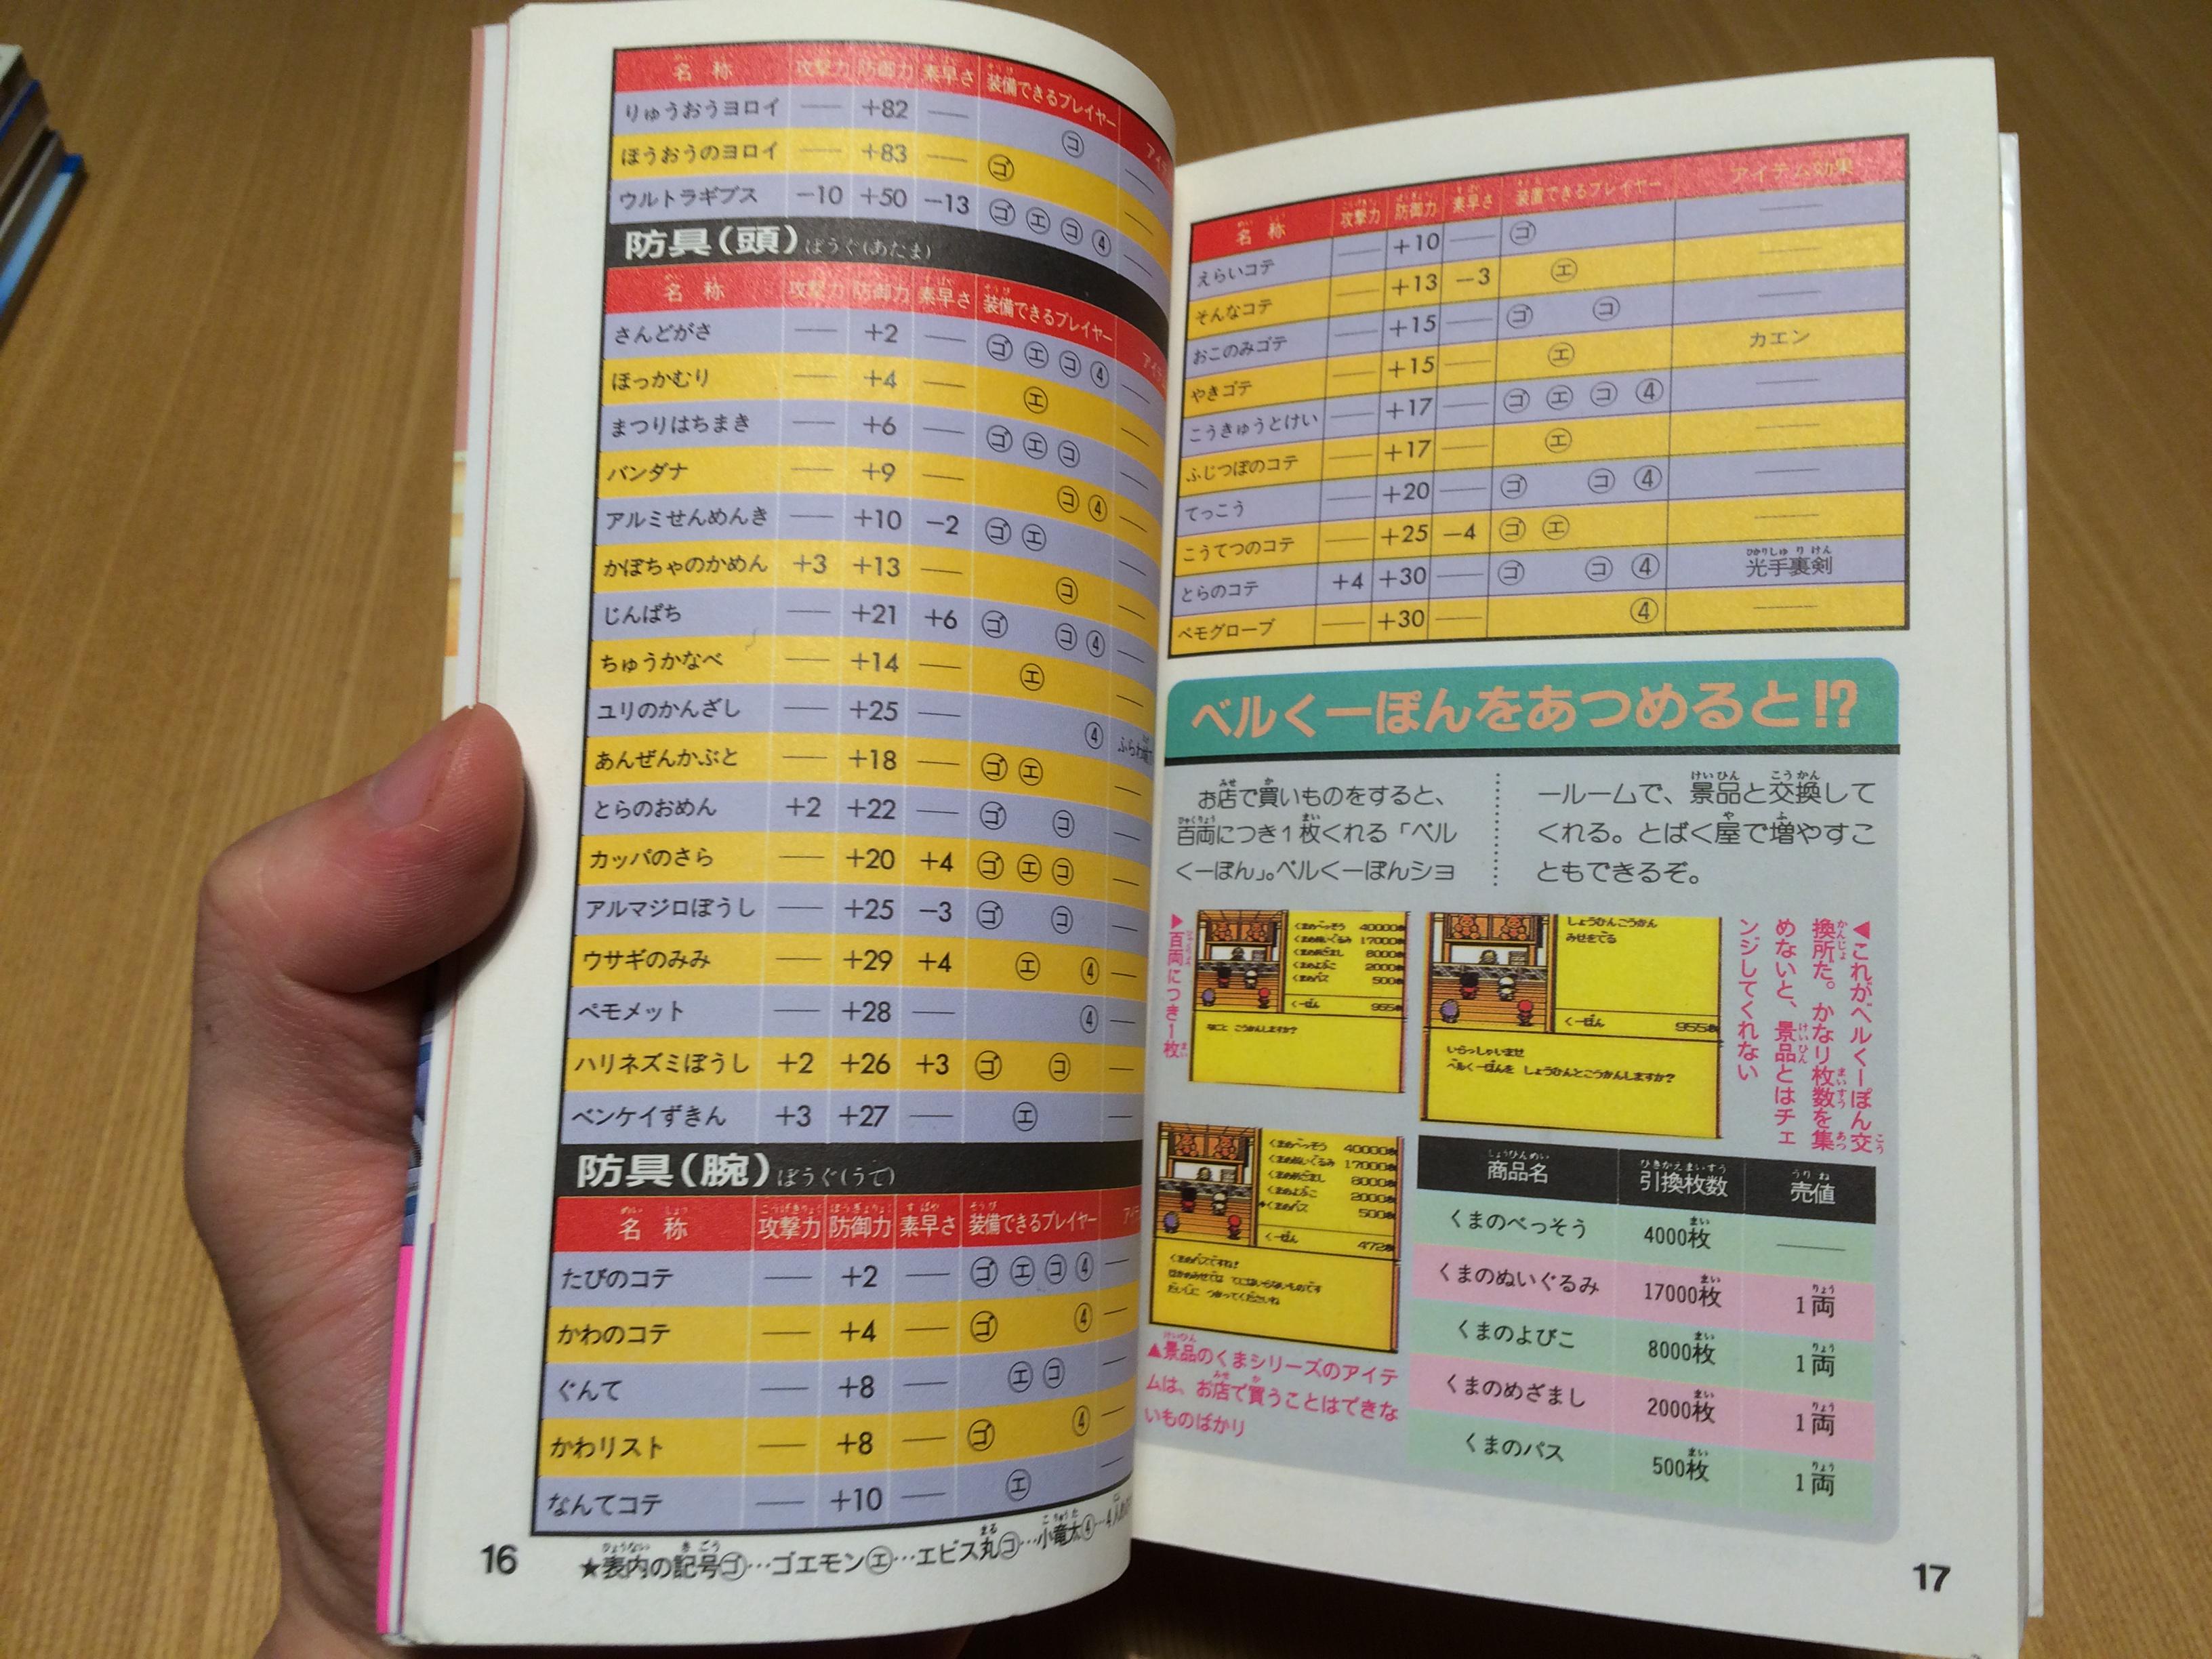 名称 攻撃力 防御力 素早さ 装備できるプレイヤー
りゅうおうヨロイ —— +82 —— コ ——
ほうおうのヨロイ —— +83 —— ゴ ——
ウルトラギプス −10 +50 −13 ゴ エ コ 4 ——
防具(頭) ぼうぐ(あたま)
名称 攻撃力 防御力 素早さ 装備できるプレイヤー
さんどがさ —— +2 —— ゴ エ コ 4 ——
ほっかむり —— +4 —— エ ——
まつりはちまき —— +6 —— ゴ エ コ ——
バンダナ —— +9 —— コ 4 ——
アルミせんめんき —— +10 −2 ゴ エ ——
かぼちゃのかめん +3 +13 —— コ ——
じんぱち —— +21 +6 ゴ コ 4 ——
ちゅうかなべ —— +14 —— エ ——
ユリのかんざし —— +25 —— 4
あんぜんかぶと —— +18 —— ゴ エ ——
とらのおめん +2 +22 —— ゴ コ ——
カッパのさら —— +20 +4 ゴ エ コ ——
アルマジロぼうし —— +25 −3 ゴ コ ——
ウサギのみみ —— +29 +4 エ 4 ——
ペモメット —— +28 —— 4 ——
ハリネズミぼうし +2 +26 +3 ゴ コ ——
ベンケイずきん +3 +27 —— エ ——
防具(腕) ぼうぐ(うで)
名称 攻撃力 防御力 素早さ 装備できるプレイヤー
たびのコテ —— +2 —— ゴ エ コ 4 ——
かわのコテ —— +4 —— ゴ 4 ——
ぐんて —— +8 —— エ コ ——
かわリスト —— +8 —— ゴ 4 ——
なんてコテ —— +10 —— エ ——
★表内の記号ゴ…ゴエモンエ…エビス丸コ…小竜太4…4人
16
名称 攻撃力 防御力 素早さ 装置できるプレイヤー アイテム効果
えらいコテ —— +10 —— ゴ ——
そんなコテ —— +13 −3 エ ——
おこのみゴテ —— +15 —— ゴ コ ——
やきゴテ —— +15 —— エ カエン
こうきゅうとけい —— +17 —— ゴ エ コ 4 ——
ふじつぼのコテ —— +17 —— エ ——
てっこう —— +20 —— ゴ コ 4 ——
こうてつのコテ —— +25 −4 ゴ エ ——
とらのコテ +4 +30 —— ゴ コ 4 光手裏剣
ペモグローブ —— +30 —— 4 ——
ベルくーぽんをあつめると!?
お店で買いものをすると、
百両につき1枚くれる「ベル
くーぽん」。ベルくーぽんショ
ールームで、景品と交換して
くれる。とばく屋で増やすこ
ともできるぞ。
▶百両につき1枚
くまのべっそう 40000枚
くまのぬいぐるみ 17000枚
くまのめざまし 8000枚
くまのよびこ 2000枚
くまのパス 500枚
くーぽん 955枚
なにと こうかんしますか?
しょうひんこうかん
みせをでる
くーぽん 955枚
いらっしゃいませ
ベルくーぽんを しょうひんとこうかんしますか?
◀これがベルくーぽん交
換所だ。かなり枚数を集
めないと、景品とはチェ
ンジしてくれない
くまのべっそう 40000枚
くまのぬいぐるみ 17000枚
くまのめざまし 8000枚
くまのよびこ 2000枚
くまのパス 500枚
くーぽん 472枚
くまのパスですね!
ほかのみせでは てにはいらないものです
だいじに つかってくださいね
▲景品のくまシリーズのアイテ
ムは、お店で買うことはできな
いものばかり
商品名 引換枚数 売値
くまのべっそう 4000枚 ——
くまのぬいぐるみ 17000枚 1両
くまのよびこ 8000枚 1両
くまのめざまし 2000枚 1両
くまのパス 500枚 1両
17